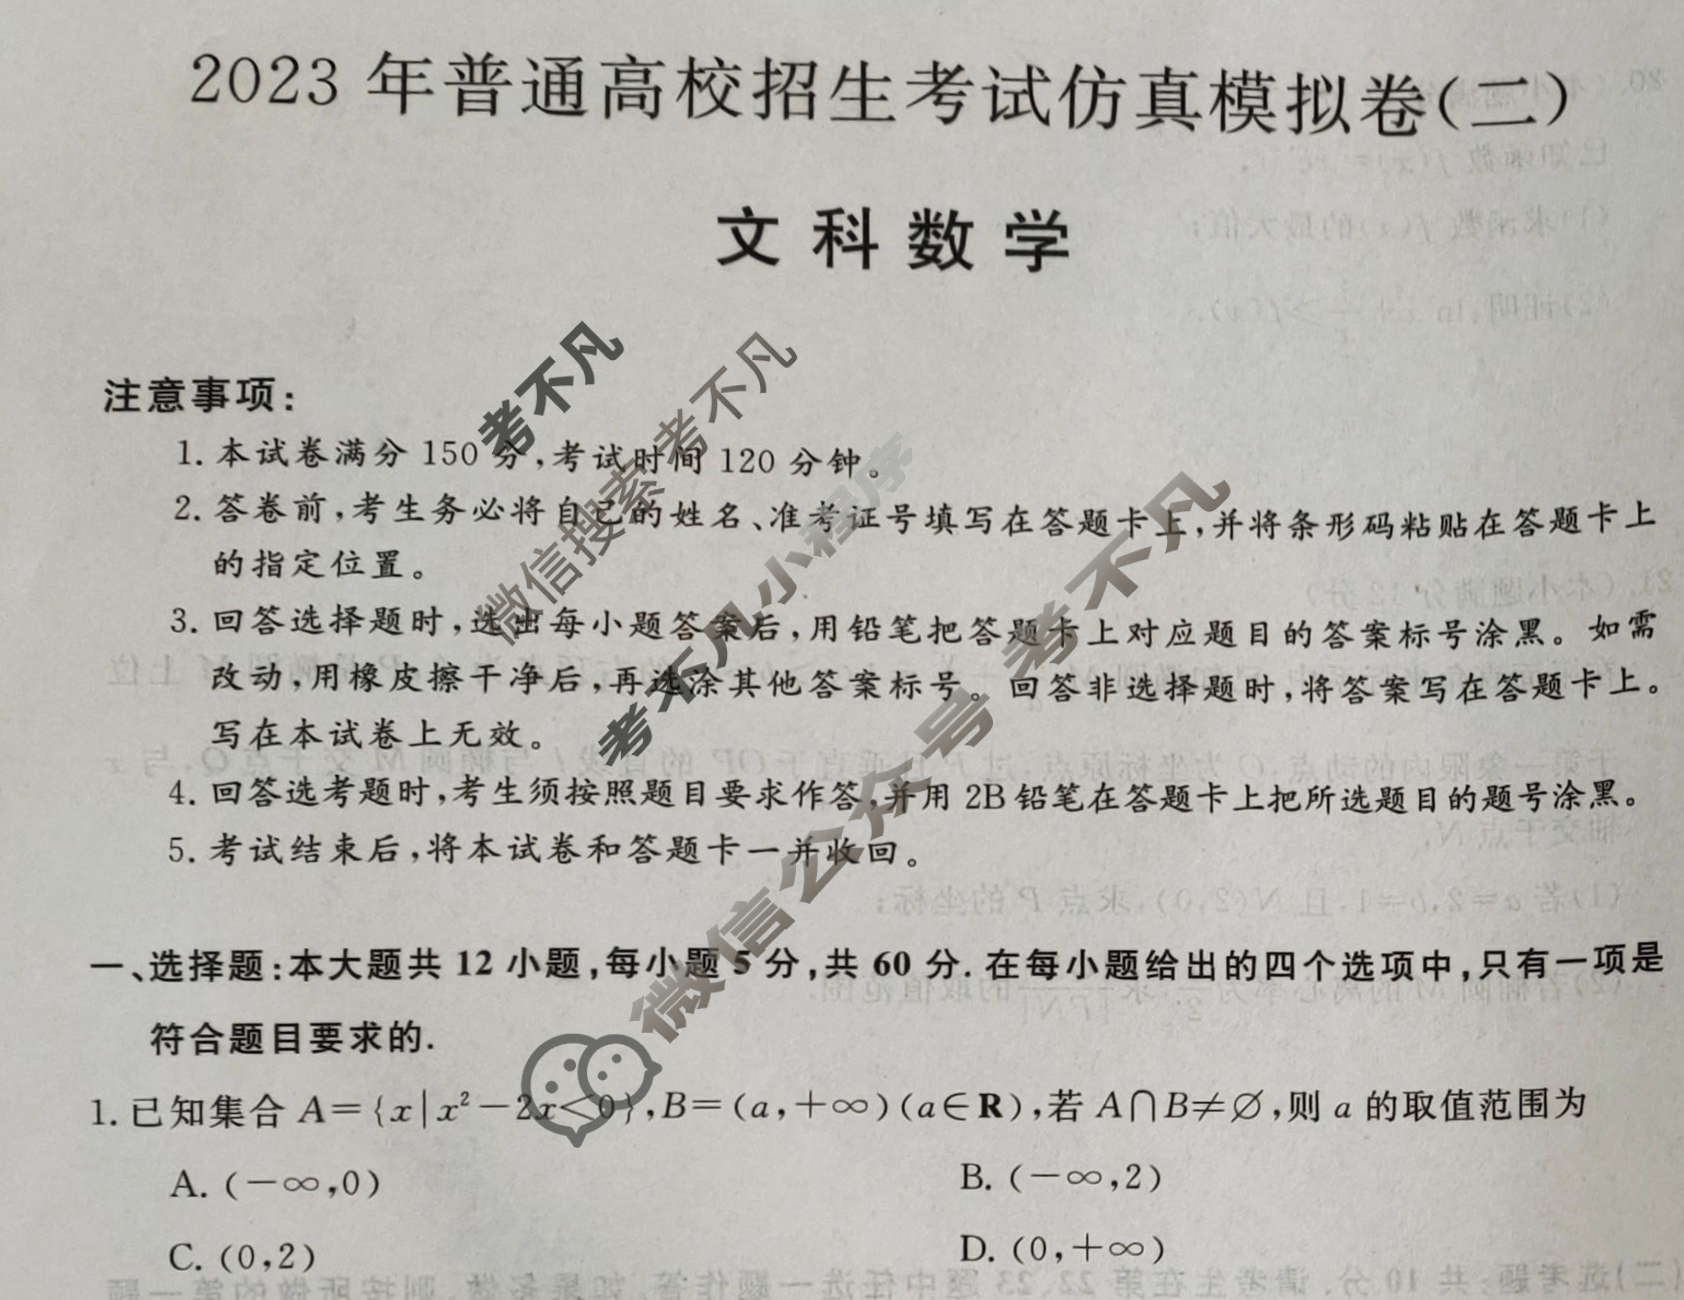 2023年普通高校招生考试仿真模拟卷(二)
文科数学
注意事项:
1. 本试卷满分150分,考试时间120分钟。
2. 答卷前,考生务必将自己的姓名、准考证号填写在答题卡上,并将条形码粘贴在答题卡上
的指定位置。
3. 回答选择题时,选出每小题答案后,用铅笔把答题卡上对应题目的答案标号涂黑。如需
改动,用橡皮擦干净后,再选涂其他答案标号。回答非选择题时,将答案写在答题卡上。
写在本试卷上无效。
4. 回答选考题时,考生须按照题目要求作答,并用2B铅笔在答题卡上把所选题目的题号涂黑。
5. 考试结束后,将本试卷和答题卡一并收回。
一、选择题:本大题共12小题,每小题5分,共60分. 在每小题给出的四个选项中,只有一项是
符合题目要求的.
1. 已知集合 A={x|x²-2x<0},B=(a,+∞)(a∈R),若 A∩B≠∅,则 a 的取值范围为
A. (-∞,0)
B. (-∞,2)
C. (0,2)
D. (0,+∞)
考不凡
微信搜索 考不凡
考不凡小程序
微信公众号 考不凡